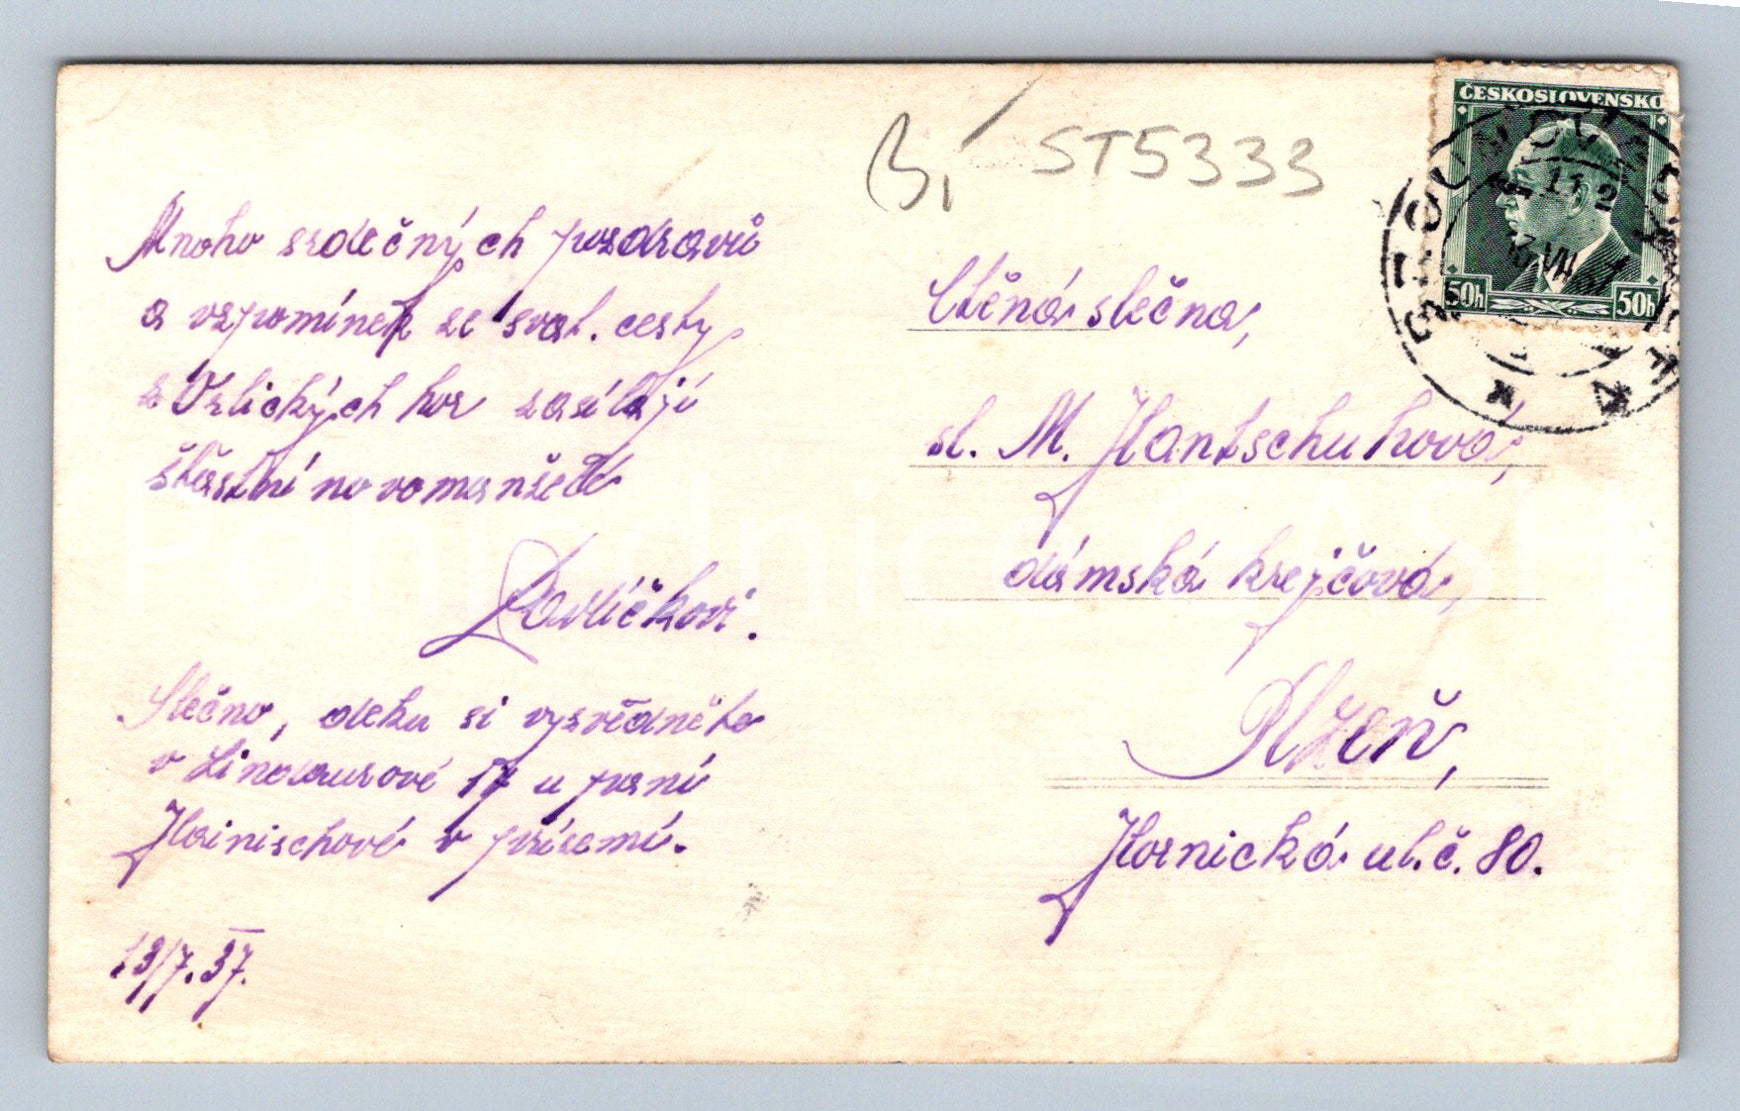 ST5333
ČESKOSLOVENSKO
50h 50h
Mnoho srdečných pozdravů
a vzpomínek ze svat. cesty
z Orlických hor zasílají
šťastní novomanželé
Havlíčkovi.
Slečno, deku si vyzvedněte
v 17 u paní
Hainischové v přízemí.
13/7.37.
Ctěná slečna,
sl. M. Hantschuhová,
dámská krejčová,
Plzeň,
Hornická ul. č. 80.
Pohlednice